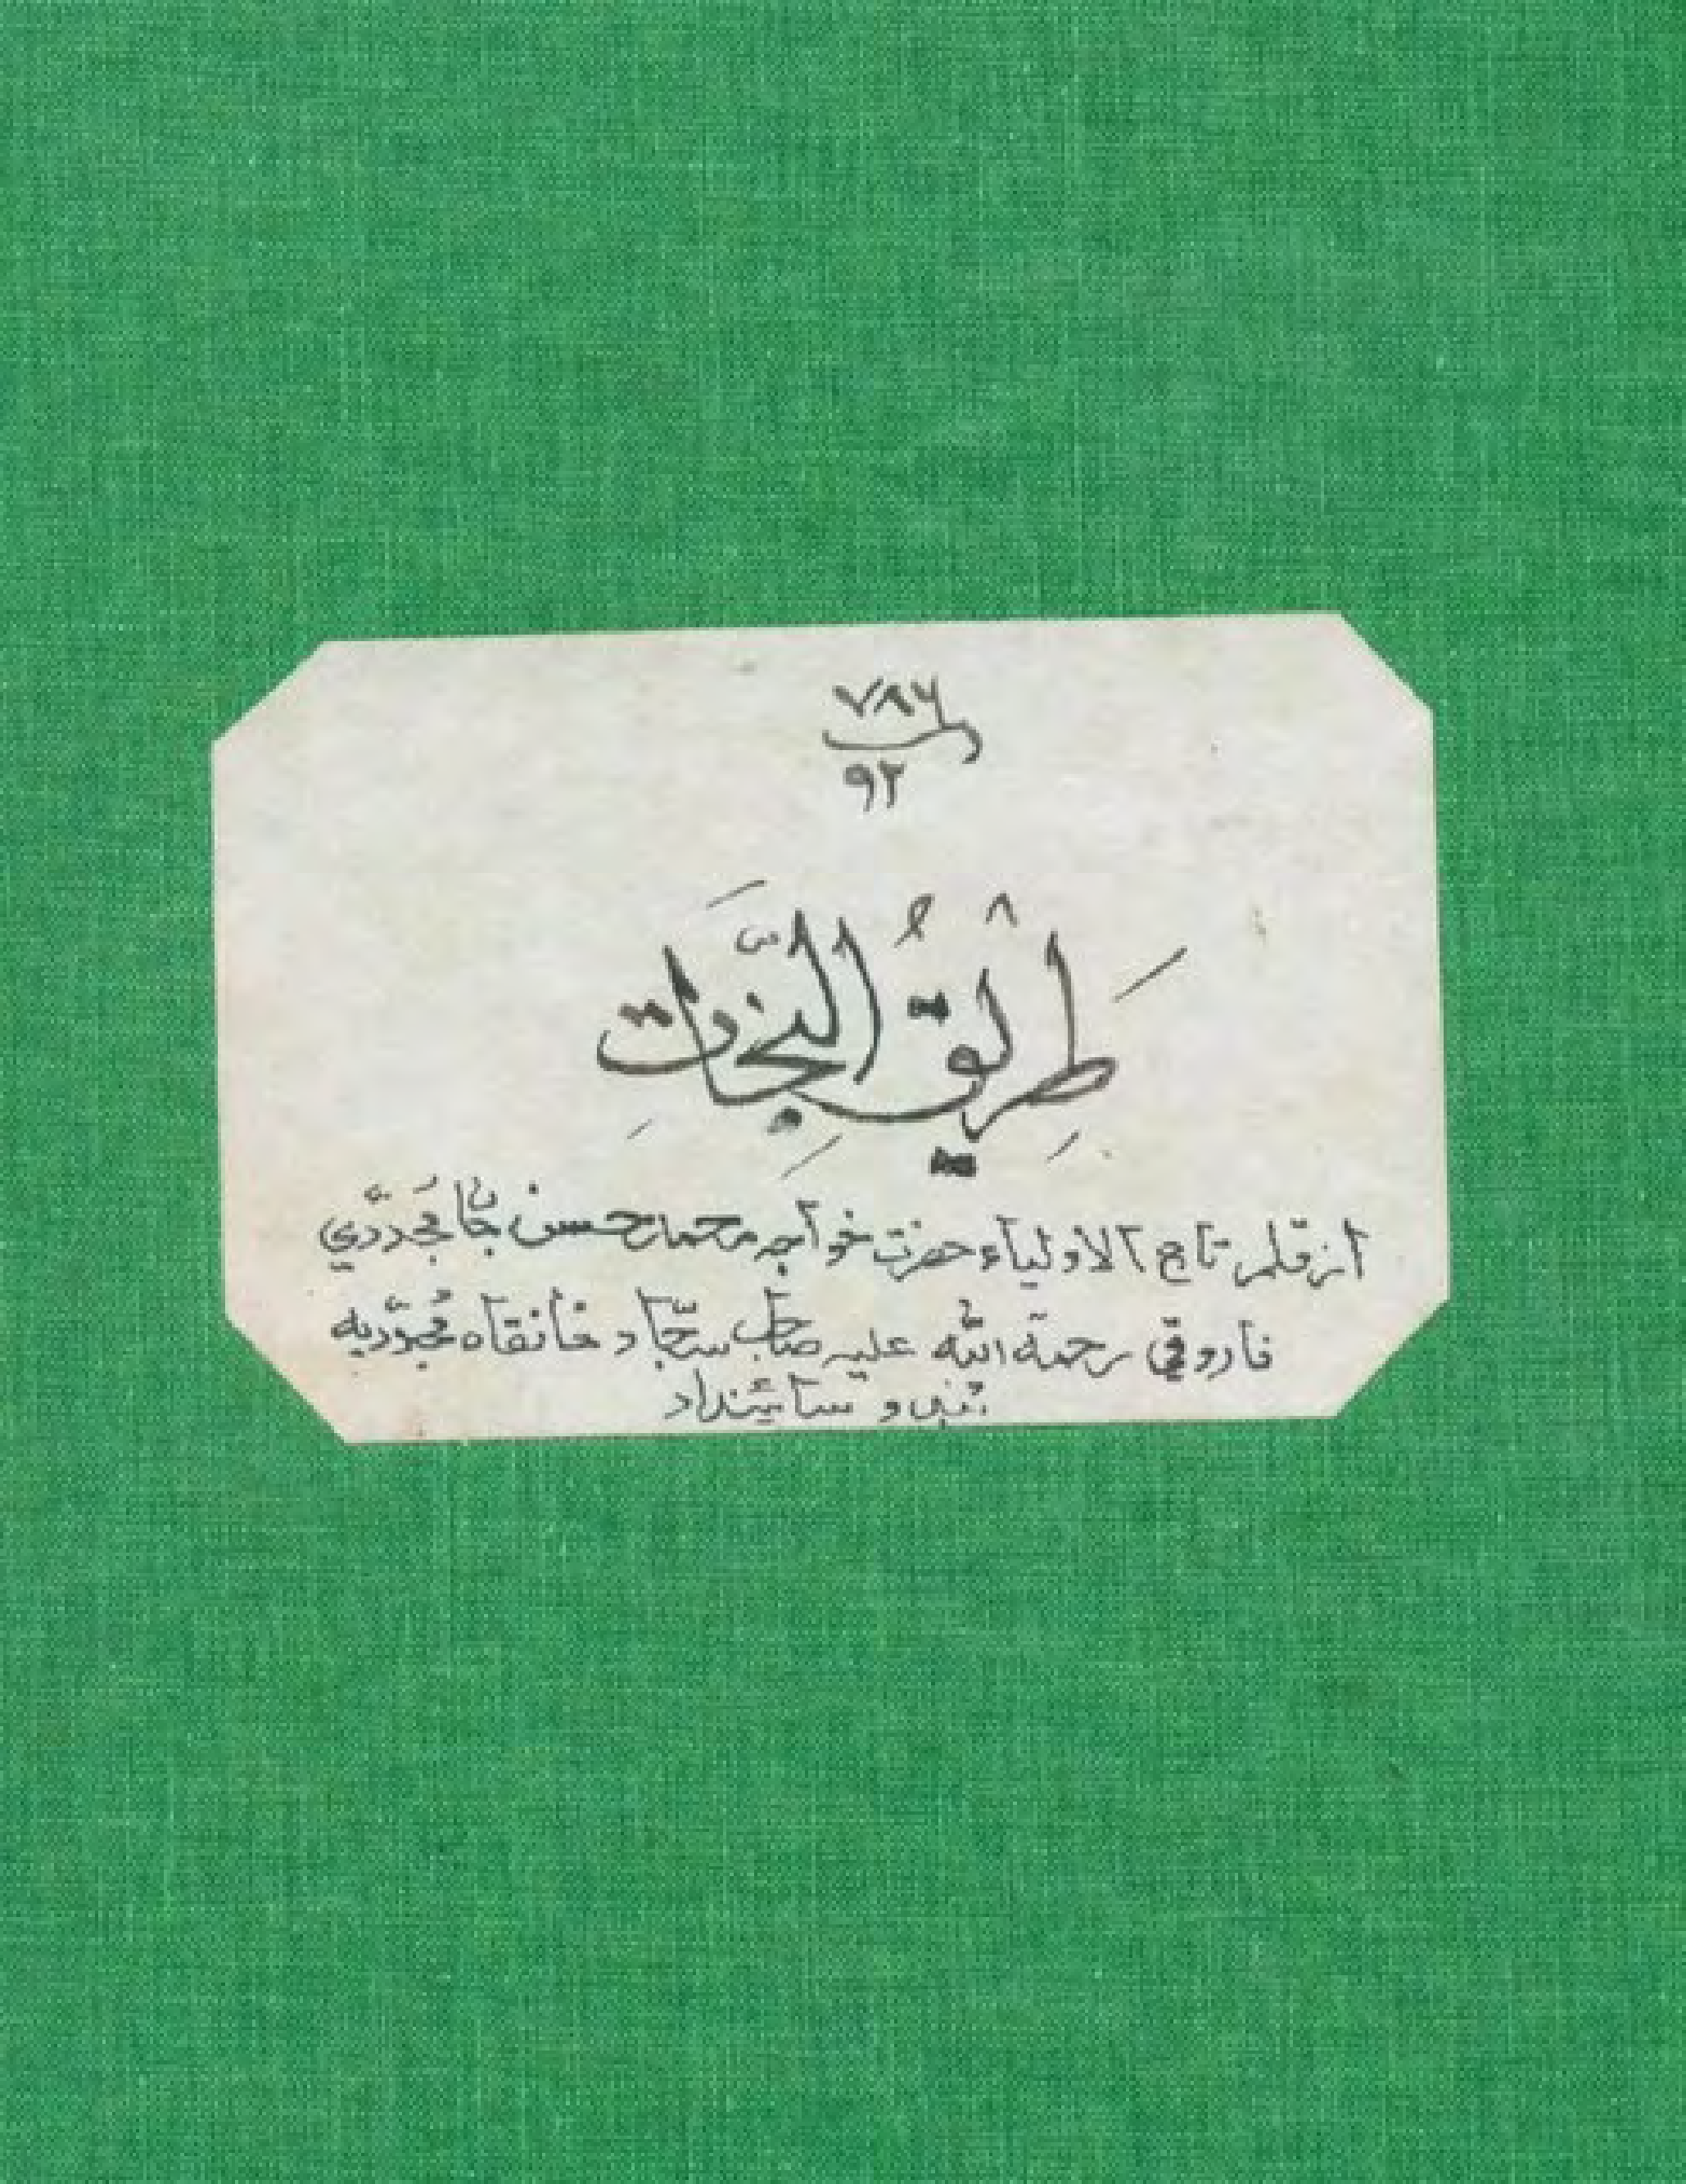 ٧٨٦
٩٢
طَرِيْقُ النَّجَاتِ
از قلم تاج الاولياء حضرت خواجه محمد حسن جان مُجددّي
فاروقي رحمة الله عليه صاحب سجّاد خانقاه مُجدّديه
سائينداد